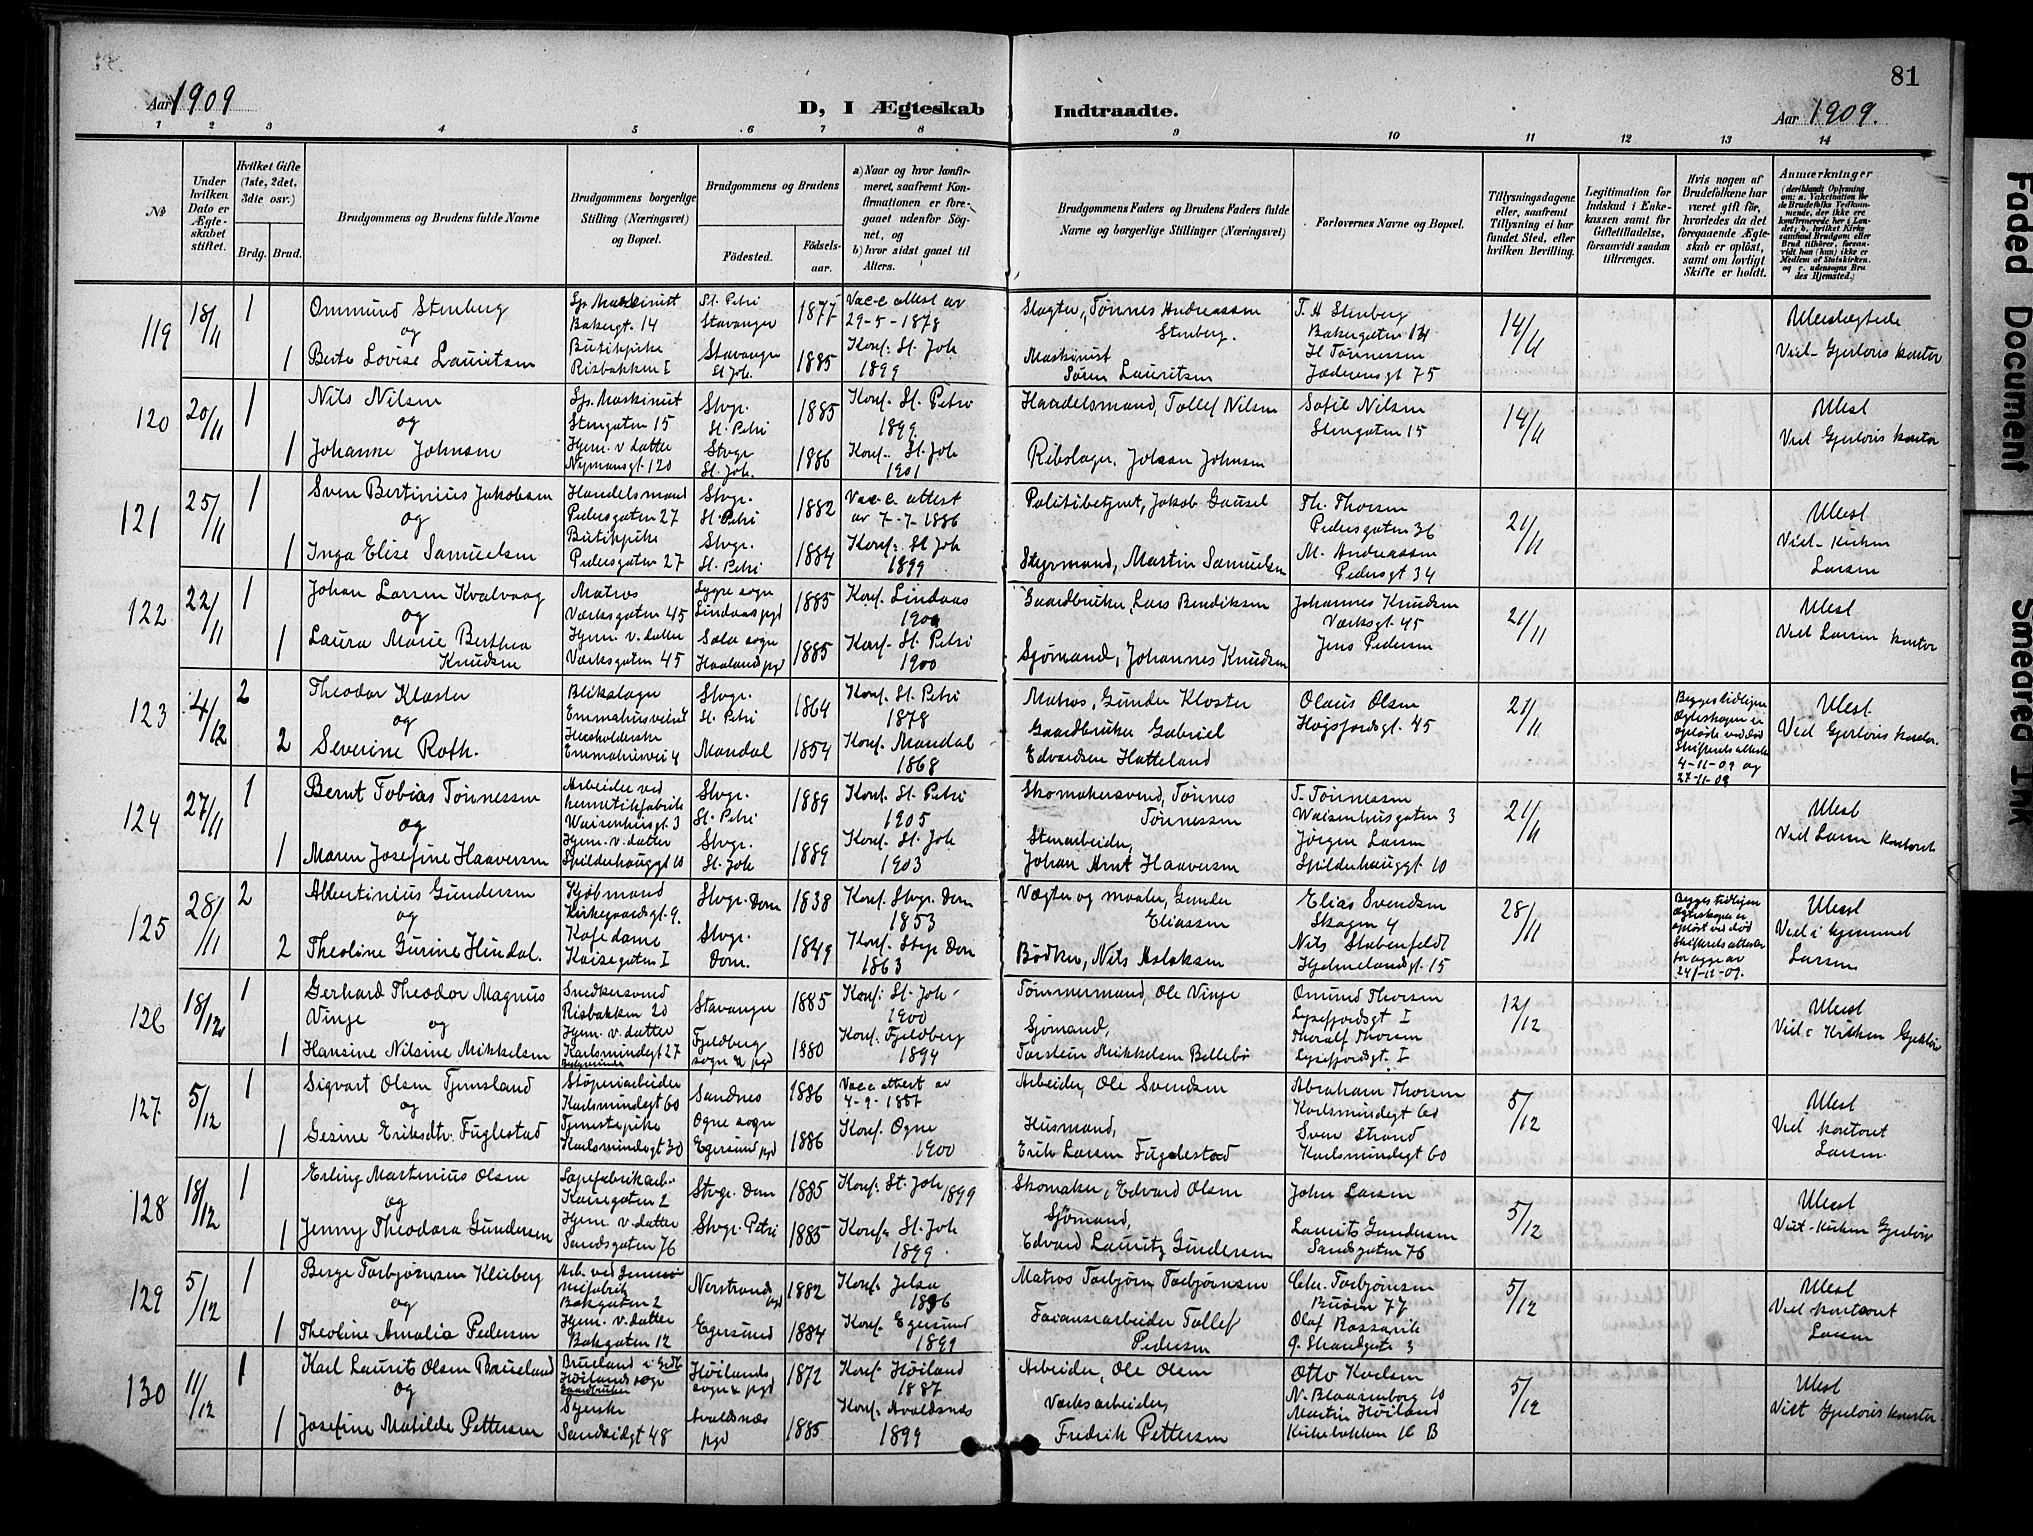 Aar 1909
D, I Ægteskab Indtraadte.
81
Aar 1909.
1 2 3 4 5 6 7 8 9 10 11 12 13 14
№
Under hvilken Dato er Ægteskabet stiftet.
Hvilket Gifte (1ste, 2det, 3die osv.)
Brdg. Brud.
Brudgommens og Brudens fulde Navne
Brudgommens borgerlige Stilling (Næringsvei) og Bopæl.
Brudgommens og Brudens
Födested.
Födsels-aar.
a) Naar og hvor konfirmeret, saafremt Konfirmationen er foregaaet udenfor Sognet, og
b) hvor sidst gaaet til Alters.
Brudgommens Faders og Brudens Faders fulde Navne og borgerlige Stillinger (Næringsvei)
Forlovernes Navne og Bopæl.
Tillysningsdagene eller, saafremt Tillysning ei har fundet Sted, efter hvilken Bevilling.
Legitimation for Indskud i Enkekassen samt for Giftetilladelse, forsaavidt saadan tiltrænges.
Hvis nogen af Brudefolkene har været gift för, hvorledes da det foregaaende Ægteskab er oplöst, samt om lovligt Skifte er holdt.
Anmærkninger
119 18/11 1 Ommund Stenberg
og
1 Berte Lovise Lauritsen
Sp. Maskinist
Bakergt. 14
Butikpike
Risbakken I
St. Petri
Stavanger 1877
Stavanger
St. Joh. 1885
Vac.c. attest av
29-5-1878
Konf. St. Joh
1899
Slagter, Tønnes Andreassen
Stenberg.
Maskinist
Søren Lauritsen
T. A Stenberg
Bakergaten 14
H Tønnessen
Jæderensgt 75
14/11
Viet Gjerløvs kontor
120 20/11 1 Nils Nilsen
og
1 Johanne Johnsen
Sp. Maskinist
Stengaten 15
Hjem. v. datter
Nymansgt 120
Stvgr.
St. Petri 1885
Stvgr
St. Joh. 1886
Konf. St. Petri
1899
Konf. St. Joh
1901
Handelsmand, Tollef Nilsen
Rebslager, Johan Johnsen
Sofie Nilsen
Stengaten 15
14/11
Ulest
Viet Gjerløvs kontor
121 25/11 1 Sven Bertinius Jakobsen
og
1 Inga Elise Samuelsen
Handelsmand
Pedersgaten 27
Butikpike
Pedersgaten 27
Stvgr.
St. Petri 1882
Stvgr.
St. Petri 1884
Vac.c. attest
av 7-7-1886
Konf. St Joh
1899
Politibetjent, Jakob Gausel
Styrmand, Martin Samuelsen
Th. Thorsen
Pedersgaten 36
M. Andreassen
Pedersgt 34
21/11
Ulest
Viet-Kirken
Larsen
122 22/11 1 Johan Larsen Kvalvaag
og
1 Laura Marie Berthea
Knudsen
Matros
Værksgaten 45
Hjem. v. datter
Værksgaten 45
Lygre sogn
Lindaas pgd 1885
Sola sogn
Haaland pgd 1885
Konf. Lindaas
1900
Konf. St. Petri
1900
Gaardbruker, Lars Bendiksen
Sjømand, Johannes Knudsen
Johannes Knudsen
Værksgt. 45
Jens Pedersen
21/11
Ulest
Viet Larsen kontor
123 4/12 2 Theodor Kloster
og
2 Severine Roth.
Blikslager
Emmahusveien 4
Husholderske
Emmahusvei 4
Stvgr.
St. Petri 1864
Mandal 1854
Konf. St. Petri
1878
Konf. Mandal
1868
Matros, Gunder Kloster
Gaardbruker Gabriel
Edvardsen Hatteland
Olaus Olsen
Høgsfjordsgt. 45
21/11
Begges tidligere
Ægteskaper er
opløste ved død
Skifterets attester
4-11-09 og
27-11-09
Ulest
Viet Gjerløvs kontor.
124 27/11 1 Bernt Tobias Tønnessen
og
1 Maren Josefine Haaversen
Arbeider ved
hermetikfabrik
Waisenhusgt 3
Hjem. v. datter
Spilderhauggt 10
Stvgr.
St. Petri 1889
Stvgr.
St. Joh 1889
Konf. St. Petri
1905
Konf. St. Joh
1903
Skomakersvend, Tønnes
Tønnessen
Stenarbeider,
Johan Arnt Haaversen
T. Tønnessen
Waisenhusgaten 3
Jørgen Larsen
Spilderhauggt 10
21/11
Ulest
Viet Larsen kontoret
125 28/11 2 Albertinius Gundersen
og
2 Theoline Gurine Hindal.
Kjøbmand
Kirkegaardsgt. 9.
Kafedame
Kaisegaten I
Stvgr. Dom 1838
Stvgr.
Dom. 1849
Konf. Stvgr. Dom
1853
Konf. Stvgr Dom
1863
Vægter og maaler, Gunder
Eliassen
Bødker, Nils Aslaksen
Elias Svendsen
Skagen 4
Nils Stabenfeldt
Hjelmelandsgt. 15
28/11
Begges tidligere
Ægteskaper er
opløst ved død
Skifterets attester
for begge av
24-11-09.
Ulest
Viet i hjemmet
Larsen
126 18/12 1 Gerhard Theodor Magnus
Vinje og
1 Hansine Nilsine Mikkelsen
Snedkersvend
Risbakken 20
Hjem. v. datter
Karlsmindegt 27
Stavanger 1885
Fjeldberg
sogn & pgd 1880
Konf. St. Joh.
1900
Konf. Fjeldberg
1894
Tømmermand, Ole Vinje
Sjømand,
Torstein Mikkelsen Bellebø
Omund Thorsen
Lysefjordsgt I
Thoralf Thorsen
Lysefjordsgt. I
12/12
Ulest
Viet i Kirken Gjerløv
127 5/12 1 Sigvart Olsen Tjensland
og
1 Gesine Eriksdtr. Fuglestad
Støperiarbeider
Karlsmindegt 60
Tjenestepike
Karlsmindegt 30
Sandnes 1886
Ogne sogn
Egersund pgd 1886
Vac.c. attest av
4-9-1887
Konf. Ogne
1900
Arbeider, Ole Svendsen
Husmand,
Erik Larsen Fuglestad
Abraham Thorsen
Karlsmindegt 60
Sven Strand
Karlsmindegt 60
5/12
Ulest
Viet kontoret
Larsen
128 18/12 1 Erling Martinius Olsen
og
1 Jenny Theodora Gundersen
Sæpefabrikarb.
Kaisegaten 2
Hjem. v. datter
Sandsgaten 76
Stvgr. Dom 1885
Stvgr. Petri 1885
Konf. St. Joh 1899
Konf. St. Joh
1899.
Skomaker, Edvard Olsen
Sjømand,
Edvard Lauritz Gundersen
John Larsen
Laurits Gundersen
Sandsgaten 76
5/12
Ulest
Viet-Kirken Gjerløv
129 5/12 1 Berge Torbjørnsen Kleiberg
og
1 Theoline Amalia Pedersen
Bakgaten 2
Hjem. v. datter
Bakgaten 12
Nerstrand pgd 1882
Egersund 1884
Konf. Jelsa
1896
Konf. Egersund
1899
Matros Torbjørn Torbjørnsen
Favansearbeider Tollef
Pedersen
Chr. Torbjørnsen
Buøen 77
Olaf Bossavik
Ø. Strandgate 3
5/12
Ulest
Viet kontoret
Larsen
130 11/12 1 Karl Laurits Olsen Brueland
og
1 Josefine Matilde Pettersen
Brueland i
Høilands sogn
Gaardbruker
Syerske
Sandeidgt 48
Høilands
sogn & pgd 1872
Avaldsnæs
pgd 1885
Konf. Høiland
1887
Konf. Avaldsnæs
1899
Arbeider, Ole Olsen
Værksarbeider,
Fredrik Pettersen
Otto Karlsen
N. Blaasenborg 10
Martin Høiland
Kirkebakken 16 B
5/12
Ulest
Viet Gjerløvs kontor
Faded Document
Smedred Ink